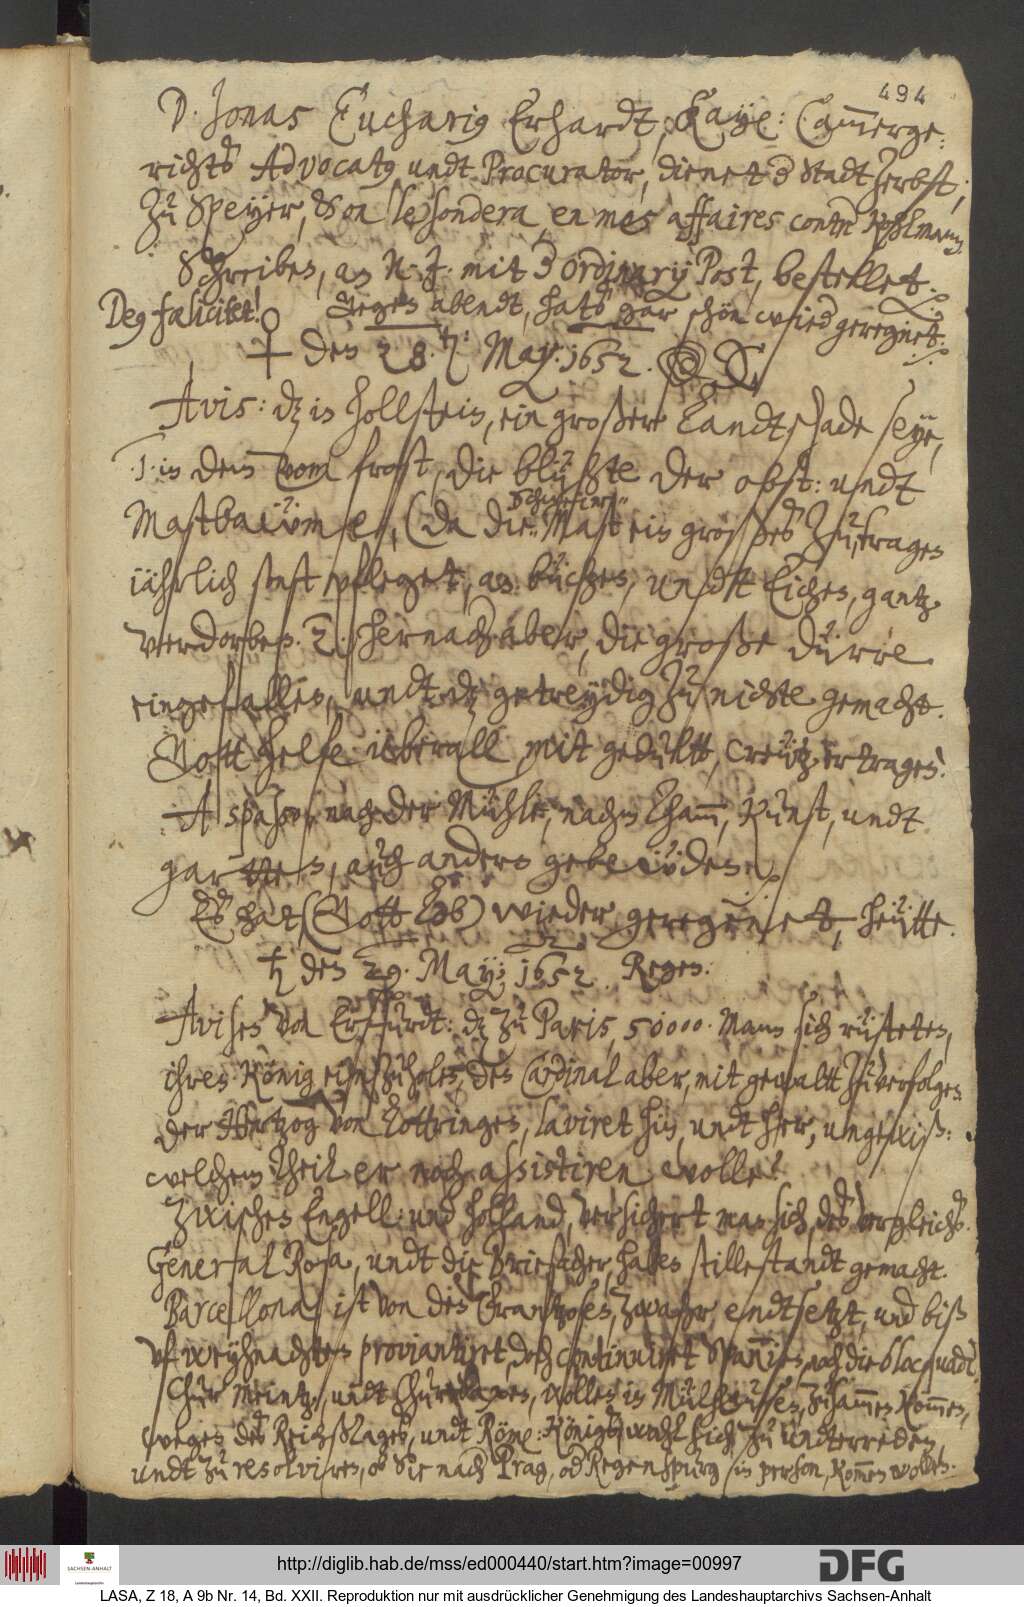 494
D. Jonas Eucharius Erhardt, Kayß: Cammerge-
richts Advocatus undt Procurator, dienet d Stadt Zerbst,
zu Speyer, & on le sondera, en mes affaires contre Kohlmann.
Schreiben, an N. J. mit d ordinarij Post, bestellet.
Deus fælicitet! Gegen abendt, hats gar schön wied geregnet.
♀ den 28. May: 1652.
Avis: dz in Hollstein, ein großer Landtschade seye,
1. in dem vom frost, die blühte der obst: undt
Mastbaüme, (da die Schweine Mast ein großes zu, tragen
iährlich sonst pfleget, an büchen, undt Eichen, gantz
verdorben. 2. hernach aber, die große dürre
eingefallen, undt dz getreydig zu nichte gemacht.
Gott helfe überall, mit gedultt, Creütz ertragen!
A spasso, nach der Mühle, nachm Thamm, Kunst, undt
garten, auch andern gebeüden.
Es hat, (Gott Lob) wieder geregnet, heütte.
♄ den 29. May; 1652. Regen.
Avisen von Erffurdt: dz zu Paris, 50000. Mann sich rüsteten,
ihren König einzuholen, den Cardinal aber, mit gewaltt zu verfolgen
der Hertzog von Lottringen, laviret hin, undt her, ungewiß:
welchem theil er noch assistiren wolle?
Zwischen Engell: und Holland, versichert man sich, des vergleichs.
General Rosa, undt die Brisacher, haben stillestandt gemacht.
Barcellona ist von den Frantzosen, zwahr, endtsetzt, und biß
uf weyhnachten proviantiret, doch continuiret Spannien, noch die blocquade
Chur Meintz, undt Chur Saxen, wollen in Mülhausen, zusammen kommen,
wegen des Reichßtages, undt Röm: Königs wahl sich zu undterreden,
undt zu resolviren, ob Sie nach Prag, od Regenspurg in person, kommen wollen.
http://diglib.hab.de/mss/ed000440/start.htm?image=00997
SACHSEN-ANHALT
DFG
LASA, Z 18, A 9b Nr. 14, Bd. XXII. Reproduktion nur mit ausdrücklicher Genehmigung des Landeshauptarchivs Sachsen-Anhalt